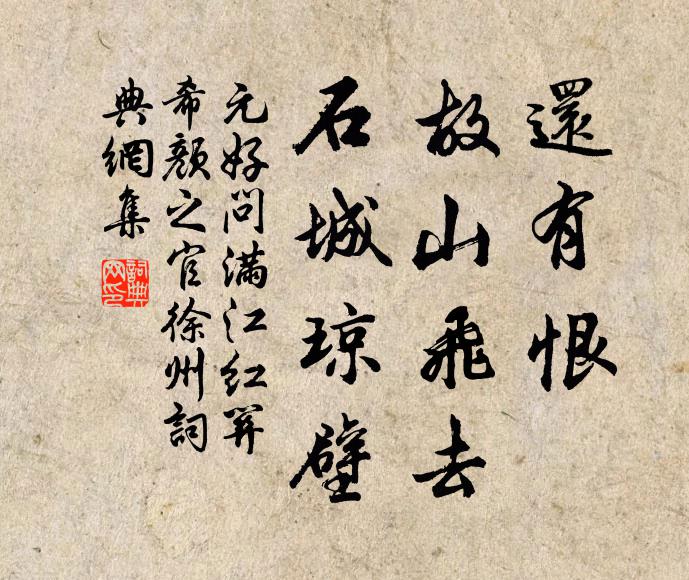 還有恨
故山飛去
石城琼壁
元好问滿江红羿
希顏之官徐州詞
典網集
詞典網印